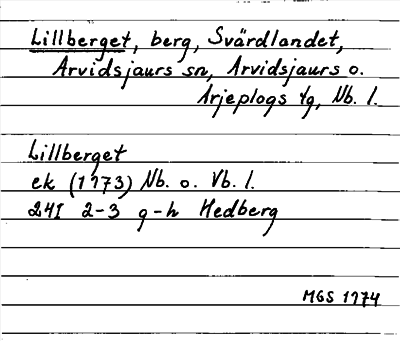 Lillberget, berg, Svärdlandet,
Arvidsjaurs sn, Arvidsjaurs o.
Arjeplogs tg, Nb. l.
Lillberget
ek (1973) Nb. o. Vb. l.
24I 2-3 g-h Hedberg
MGS 1974